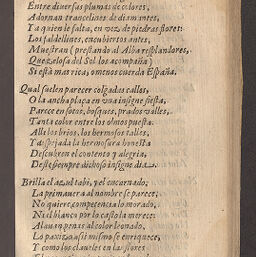 Entre diuersas plumas de colores,
Adornan trancelines de diamantes,
Y a quien le falta, en vez de piedras flores:
Los faldellines, encubiertos antes,
Muestran (prestando al Alba resplandores,
Que zelosa del Sol los acompaña)
Si està mas rica, o menos cuerda España.
Qual suelen parecer colgadas calles,
O la ancha plaça en vna insigne fiesta,
Parece en sotos, bosques, prados, valles,
Tanta color entre los olmos puesta.
Alli los brios, los hermosos talles,
Y despejada la hermosura honesta
Descubren el contento y alegria,
Deste siempre dichoso insigne dia.
Brilla el azul tabi, y el encarnado,
La primauera al nombre se parece:
No quiere competencia lo morado,
Ni el blanco por lo casto la merece:
Alauan penas al color leonado,
Lo pajizo assi mismo se enriquece,
Y como los claueles en las flores